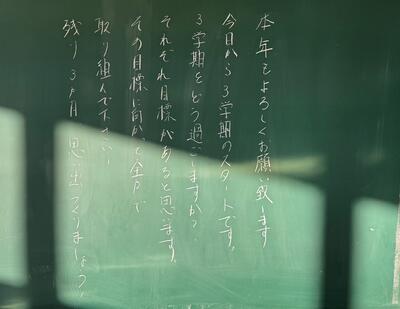 本年もよろしくお願い致します
今日から3学期のスタートです。
3学期をどう過ごしますか?
それぞれ目標があると思います。
その目標に向かって全力で
取り組んで下さい!
残り3ヶ月思い出つくりましょう。